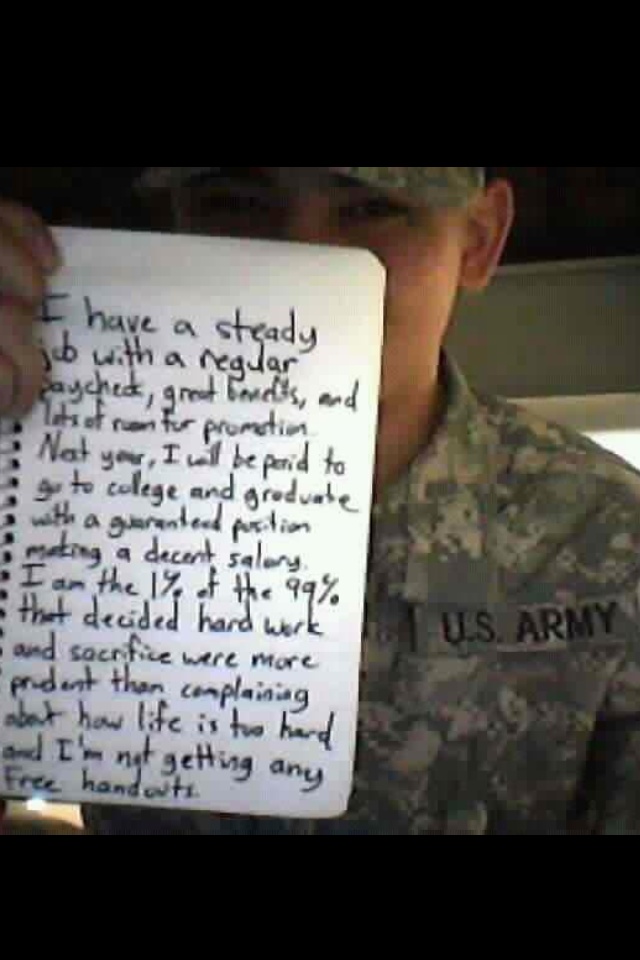 I have a steady
job with a regular
paycheck, great benefits, and
lots of room for promotion.
Next year, I will be paid to
go to college and graduate
with a guaranteed position
making a decent salary.
I am the 1% of the 99%
that decided hard work
and sacrifice were more
prudent than complaining
about how life is too hard
and I'm not getting any
Free handouts.
U.S. ARMY